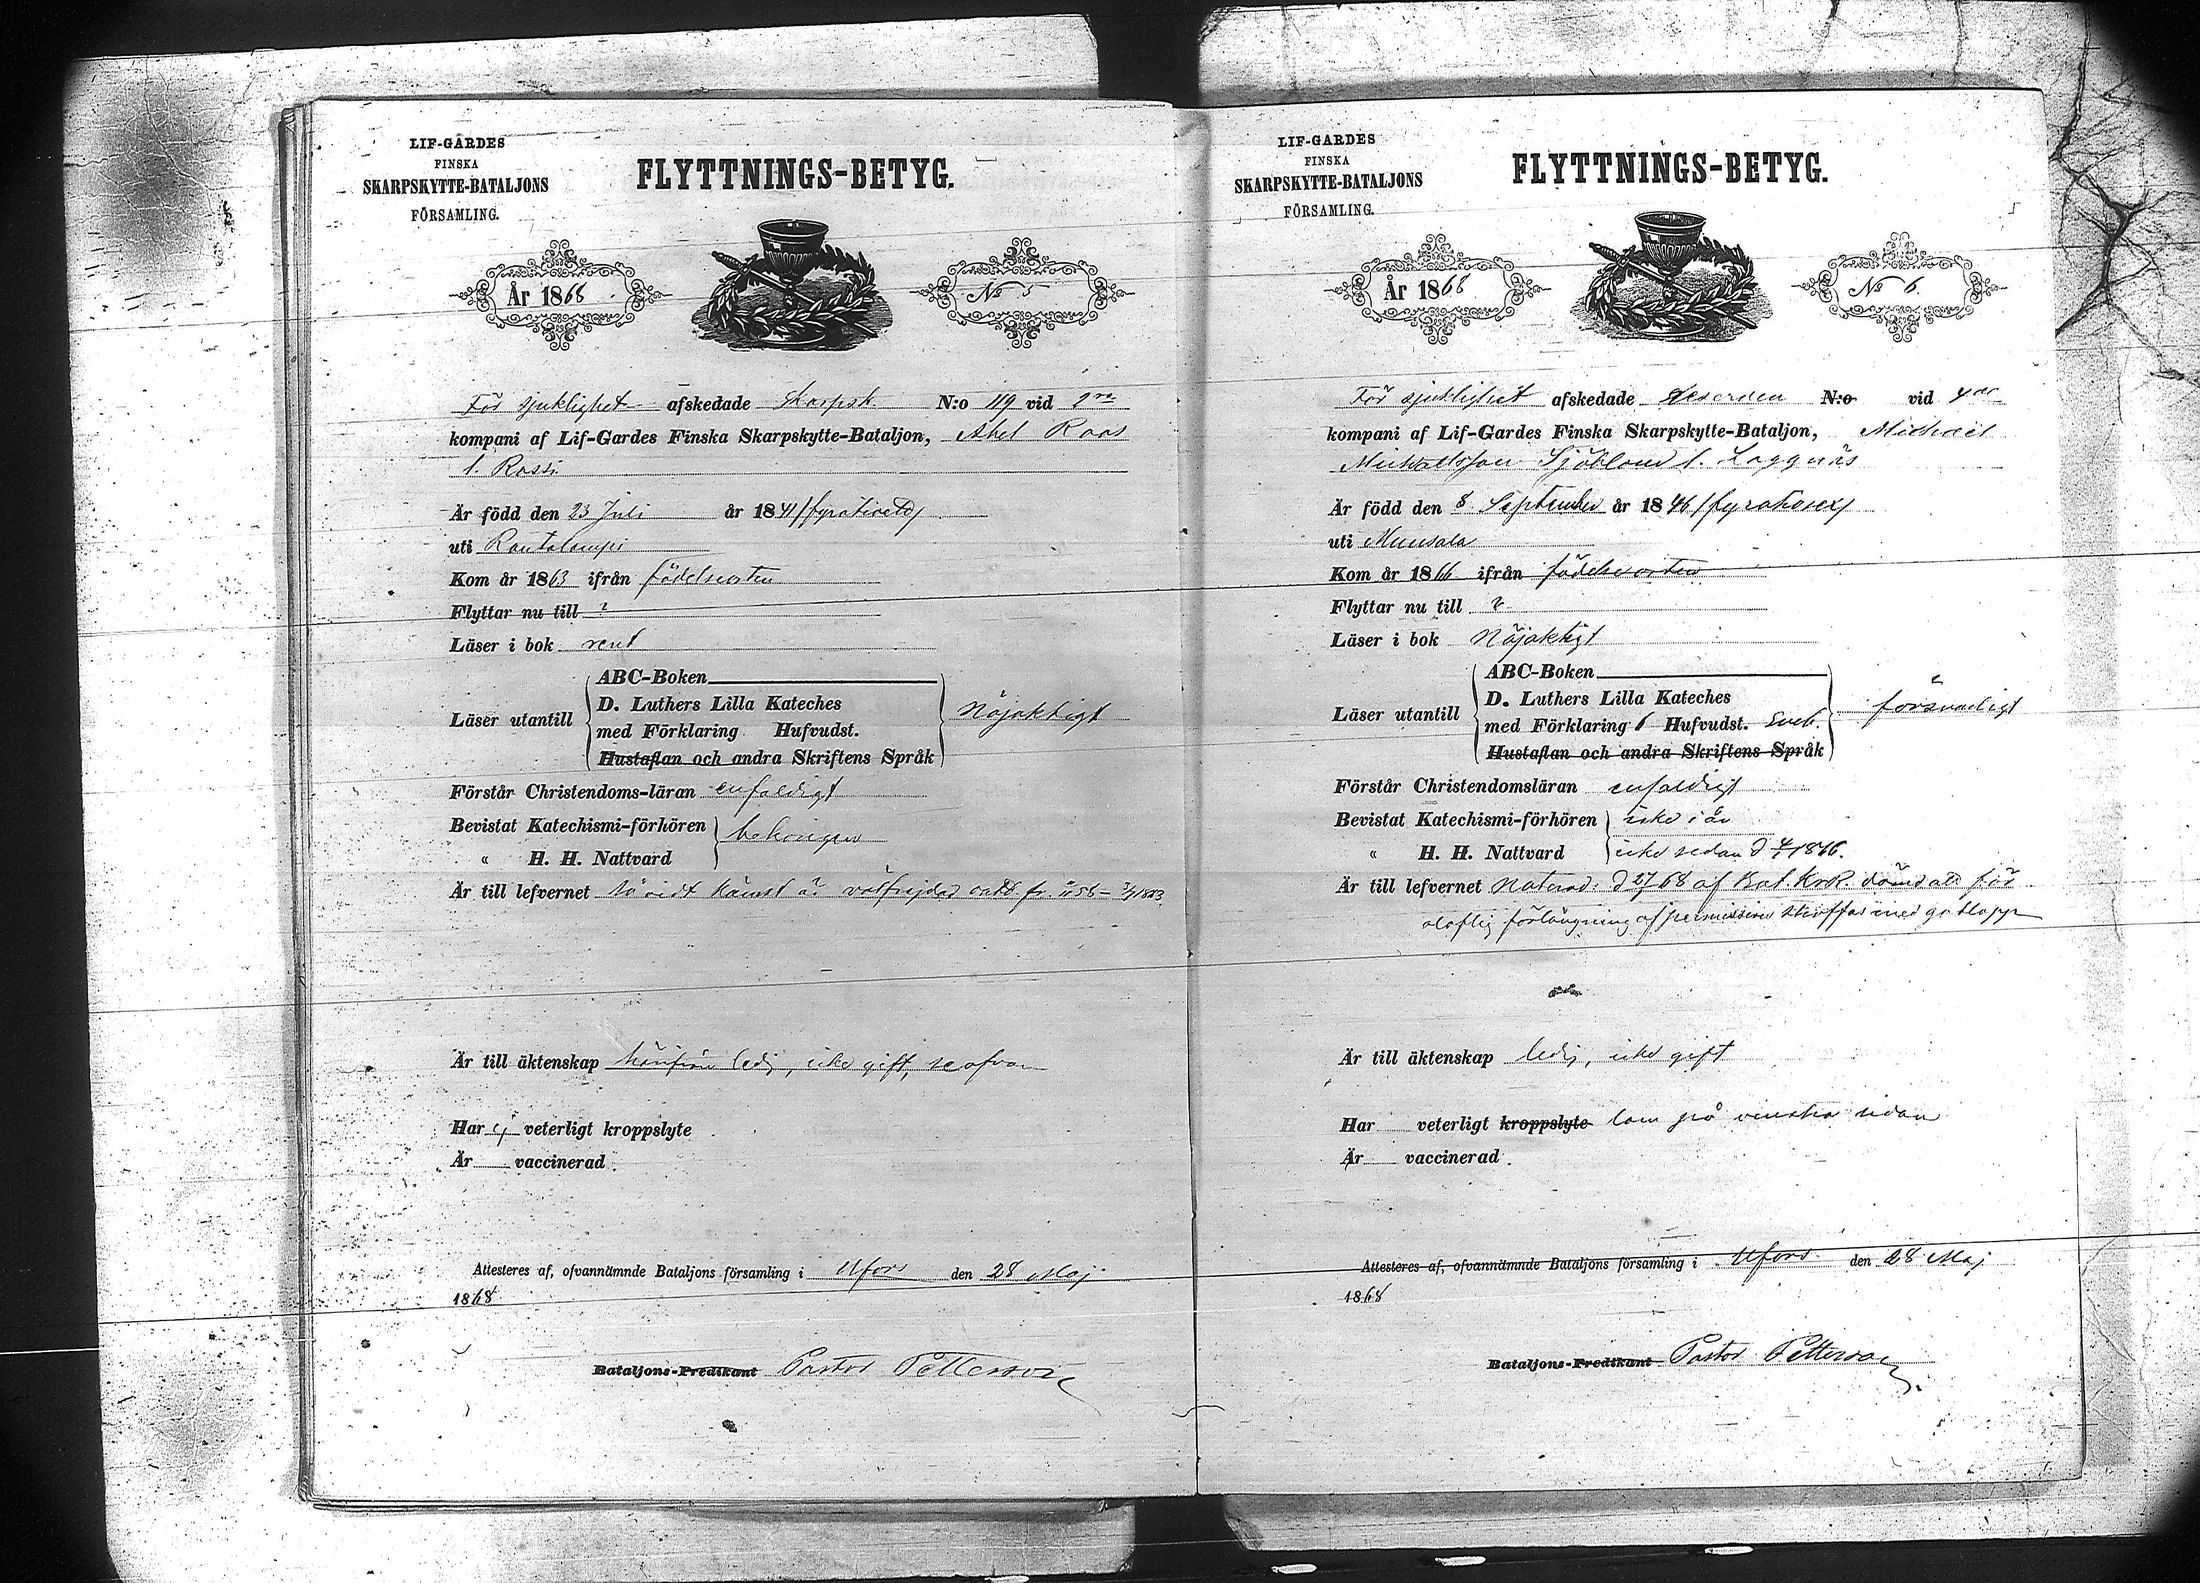 LIF-GARDES
FINSKA
SKARPSKYTTE-BATALJONS
FÖRSAMLING.
FLYTTNINGS-BETYG.
År 1868
No 5
För sjuklighet afskedade Skarpsk. N:o 119 vid 2ra
kompani af Lif-Gardes Finska Skarpskytte-Bataljon, Abel Roos
l. Rossi
Är född den 23 Juli år 1841 /fyrationett/
uti Rautalampi
Kom år 1863 ifrån födelseorten
Flyttar nu till ?
Läser i bok rent
Läser utantill
ABC-Boken
D. Luthers Lilla Kateches
med Förklaring Hufvudst.
Hustaflan och andra Skriftens Språk
Nöjaktigt
Förstår Christendoms-läran enfaldigt
Bevistat Katechismi-förhören
" H. H. Nattvard
behörigen
Är till lefvernet så vidt kändt är välfrejdad
Är till äktenskap härifrån ledig, icke gift,
Har ej veterligt kroppslyte
Är vaccinerad.
Attesteres af, ofvannämnde Bataljons församling i Hfors den 28 Maj
1868
Bataljons-Predikant Pastor Petterson
LIF-GARDES
FINSKA
SKARPSKYTTE-BATALJONS
FÖRSAMLING.
FLYTTNINGS-BETYG.
År 1868
No 6.
För sjuklighet afskedade N:o vid 4de
kompani af Lif-Gardes Finska Skarpskytte-Bataljon, Michael
Michaelsson Sjöblom l. Laggnäs
Är född den 8 September år 1846 /fyratiosex/
uti Munsala
Kom år 1866 ifrån födelseorten
Flyttar nu till ?
Läser i bok Nöjaktigt
Läser utantill
ABC-Boken
D. Luthers Lilla Kateches
med Förklaring 6 Hufvudst.
Hustaflan och andra Skriftens Språk
försvarligt
Förstår Christendomsläran enfaldigt
Bevistat Katechismi-förhören icke i år
" H. H. Nattvard icke sedan d 1866.
Är till lefvernet af Bat. KrR. dömd att för
olaflig förlängning af permission straffas med
Är till äktenskap ledig, icke gift
Har veterligt kroppslyte lam på venstra sidan
Är vaccinerad.
Attesteres af, ofvannämnde Bataljons församling i Hfors den 28 Maj
1868
Bataljons-Predikant Pastor Petterson